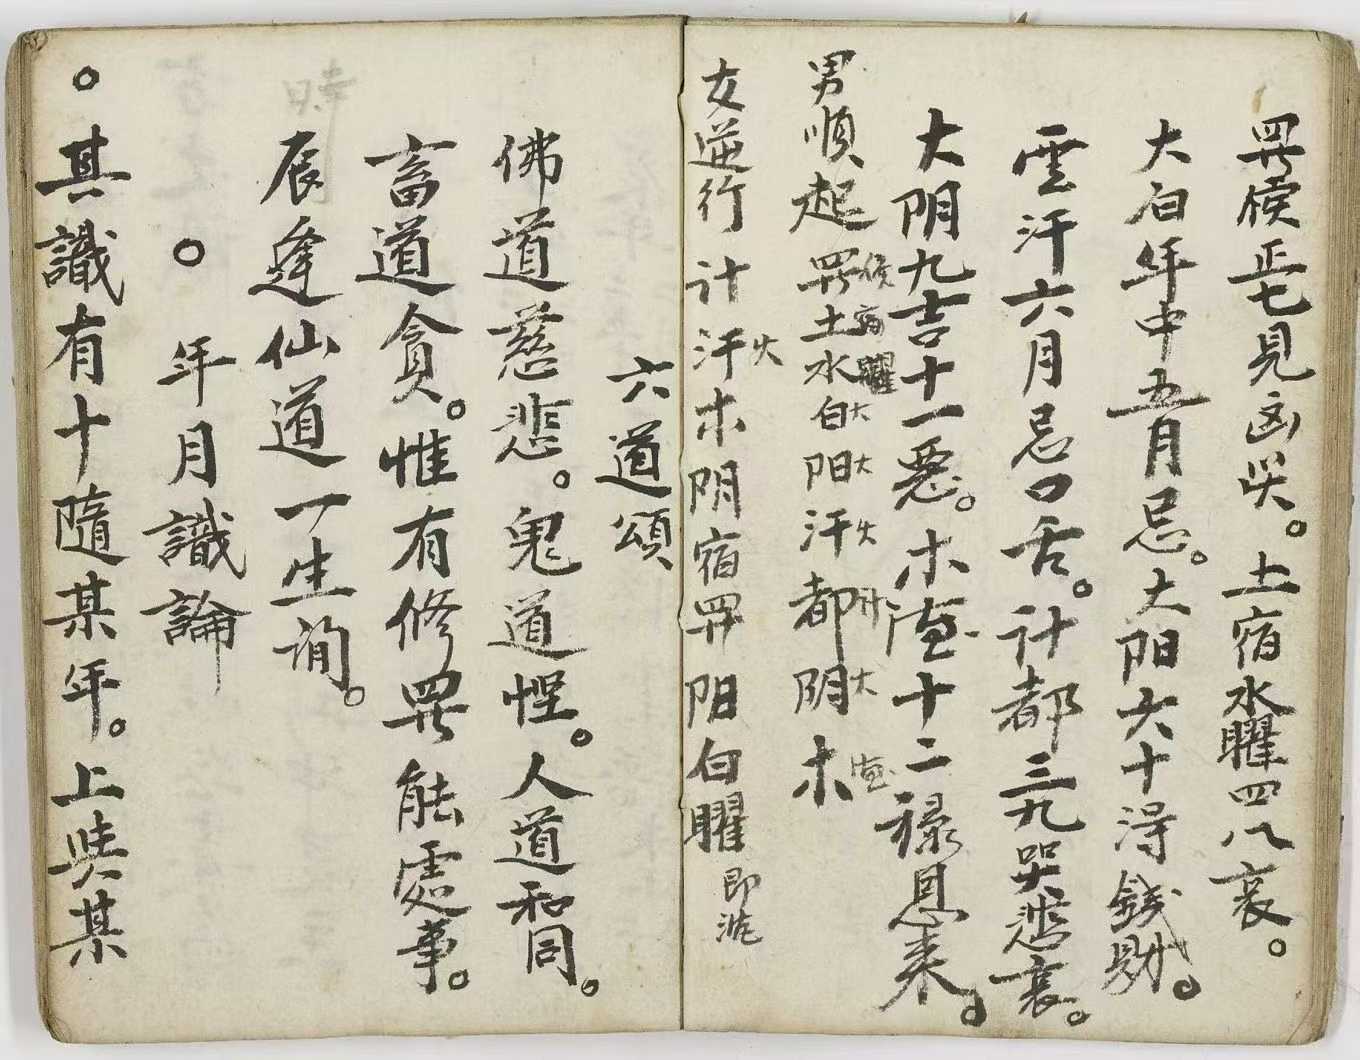 罡候正七見凶哭。土宿水曜四八哀。
大白年中五月忌。大阳六十淂錢財。
雲汗六月忌口舌。计都三九哭悲哀。
大阴九吉十一惡。木德十二禄恩来。
男順起罡候土宿水曜白大阳大汗火都计阴大木德
女逆行计汗火木阴宿罡阳白曜即
六道頌
佛道慈悲。鬼道慳。人道和同。
畜道貪。惟有修羅能處事。
辰逢仙道一生
○年月識論
○其識有十隨某年。上